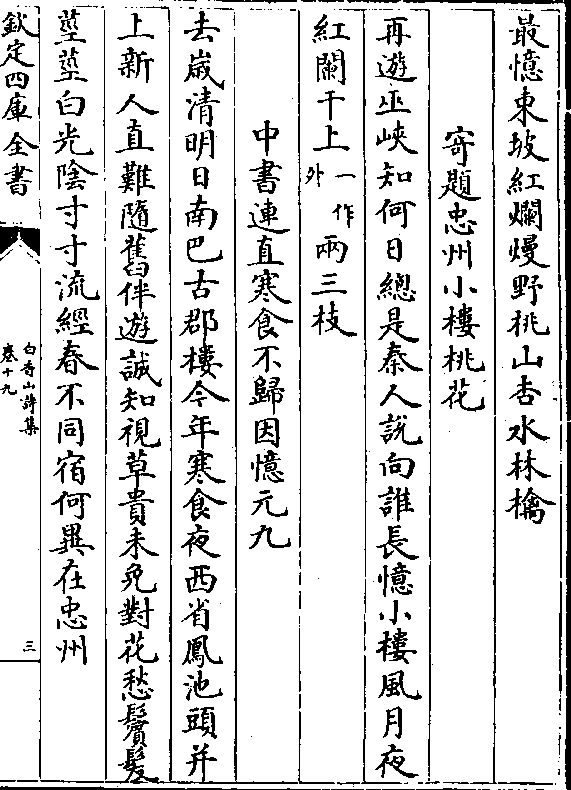 最憶東坡紅爛熳野桃山杏水林檎
寄題忠州小樓桃花
再遊巫峽知何日總是秦人說向誰長憶小樓風月夜
紅闌干上一作外兩三枝
中書連直寒食不歸因憶元九
去歲清明日南巴古郡樓今年寒食夜西省鳳池頭并
上新人直難隨舊伴遊誠知視草貴未免對花愁鬢髮
莖莖白光陰寸寸流經春不同宿何異在忠州
欽定四庫全書
白香山詩集
卷十九
三